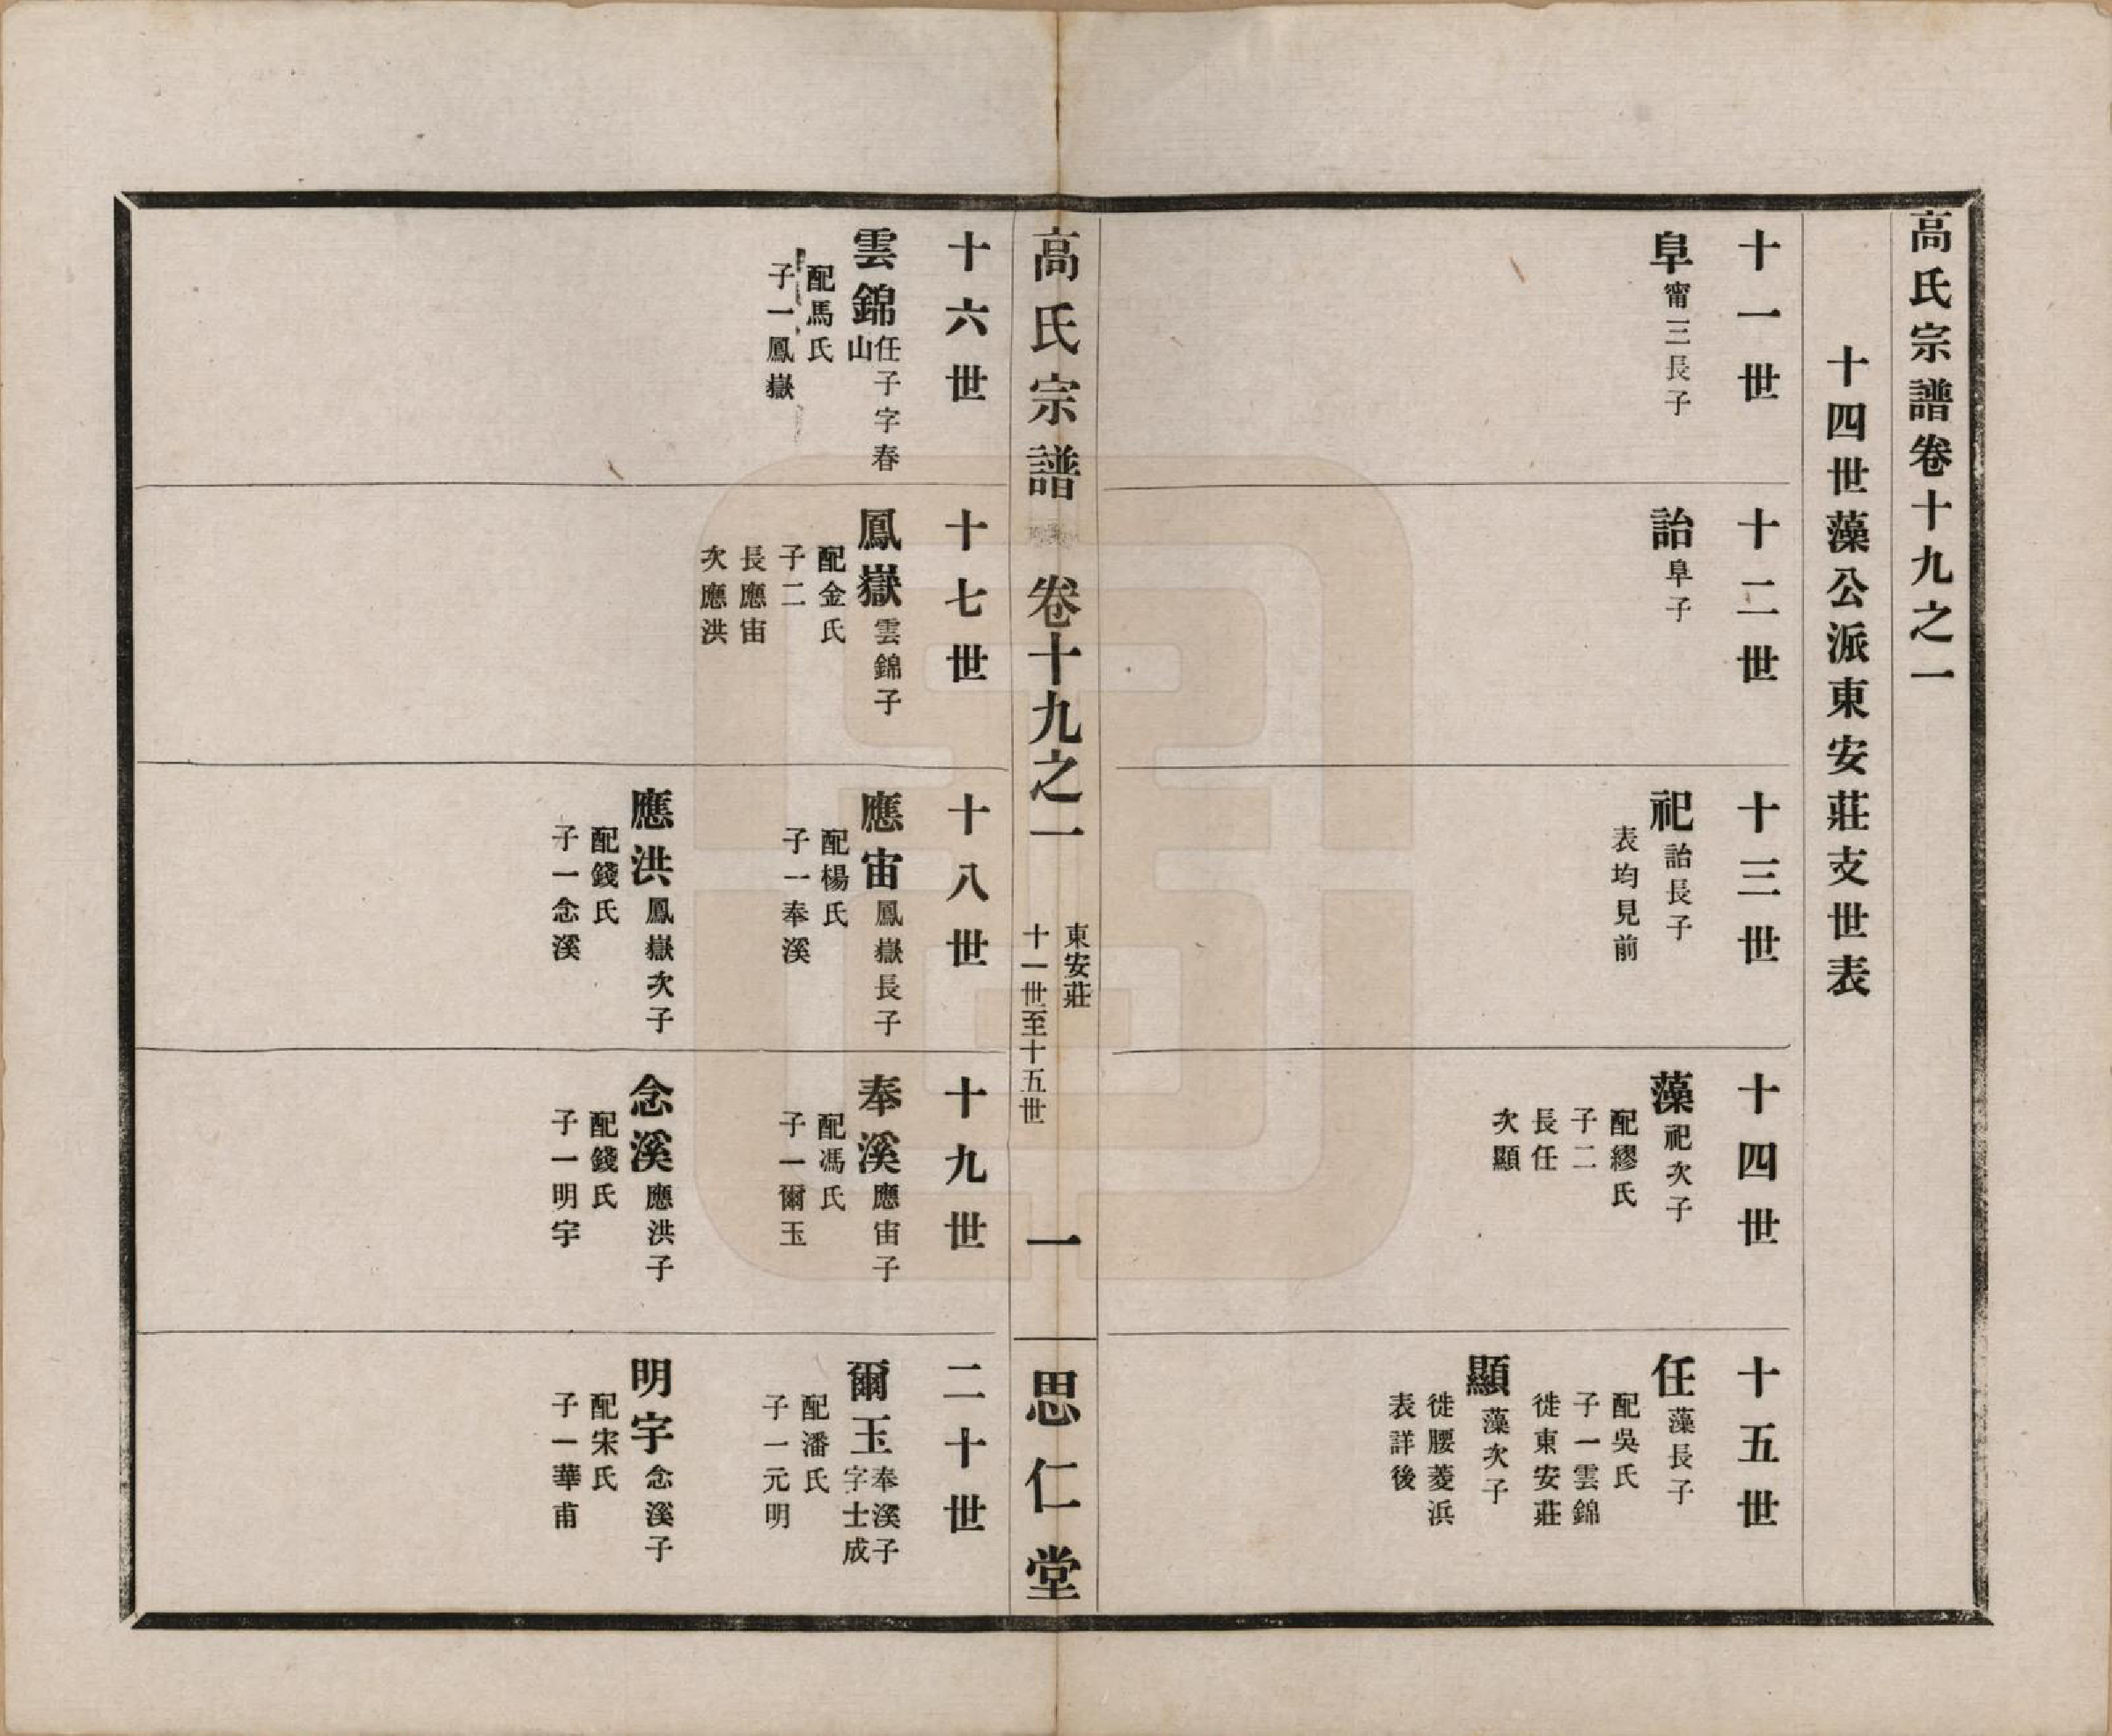 高氏宗譜卷十九之一
十四世藻公派東安莊支世表
十一世
阜甯三長子
十二世
詒阜子
十三世
祀詒長子
表均見前
十四世
藻祀次子
配繆氏
子二
長任
次顯
十五世
任藻長子
配吳氏
子一雲錦
徙東安莊
顯藻次子
徙腰菱浜
表詳後
高氏宗譜
卷十九之一
東安莊
十一世至十五世
一
思仁堂
十六世
雲錦任子字春
山
配馬氏
子一鳳嶽
十七世
鳳嶽雲錦子
配金氏
子二
長應宙
次應洪
十八世
應宙鳳嶽長子
配楊氏
子一奉溪
應洪鳳嶽次子
配錢氏
子一念溪
十九世
奉溪應宙子
配馮氏
子一爾玉
念溪應洪子
配錢氏
子一明宇
二十世
爾玉奉溪子
字士成
配潘氏
子一元明
明宇念溪子
配宋氏
子一華甫